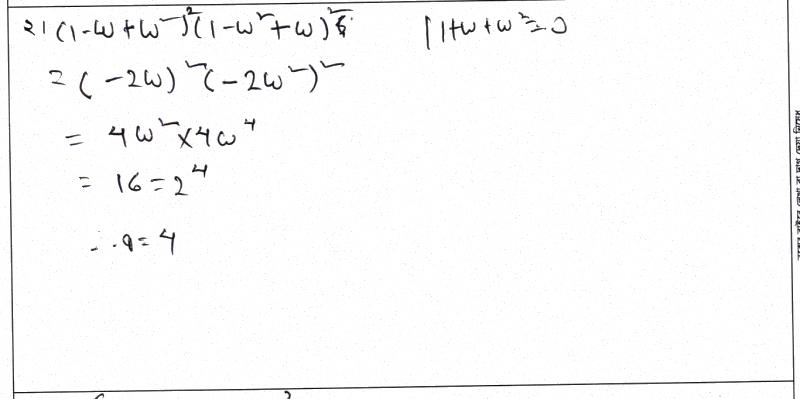 ২১ (1-ω+ω²)²(1-ω²+ω)² [1+ω+ω²=0
= (-2ω)²(-2ω²)²
= 4ω²×4ω⁴
= 16=2⁴
∴ a=4